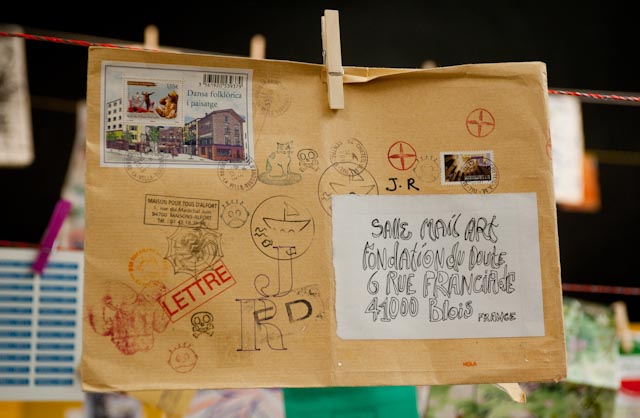 Dansa folklòrica
i paisatge
MAISON POUR TOUS D'ALFORT
94700 MAISONS-ALFORT
LETTRE
J
R D
J.R
SALLE MAIL ART
FONDATION du DOUTE
6 RUE FRANCIADE
41000 Blois
FRANCE
HOLA